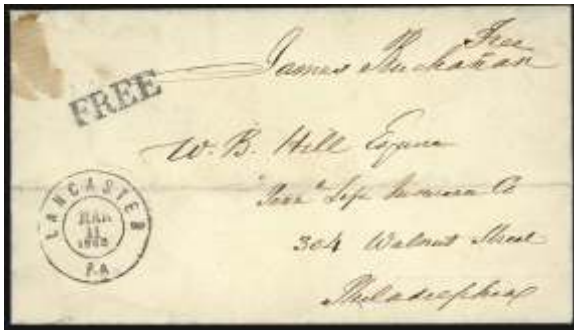 Free
James Buchanan
FREE
W. B. Hill Esquire
Penna Life Insurance Co
304 Walnut Street
Philadelphia
LANCASTER
MAR
11
PA